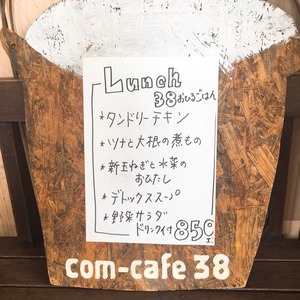 Lunch
38おひるごはん
*タンドリーチキン
*ツナと大根の煮もの
*新玉ねぎと水菜の
おひたし
*デトックススープ
*野菜サラダ
ドリンク付 850
com-cafe 38